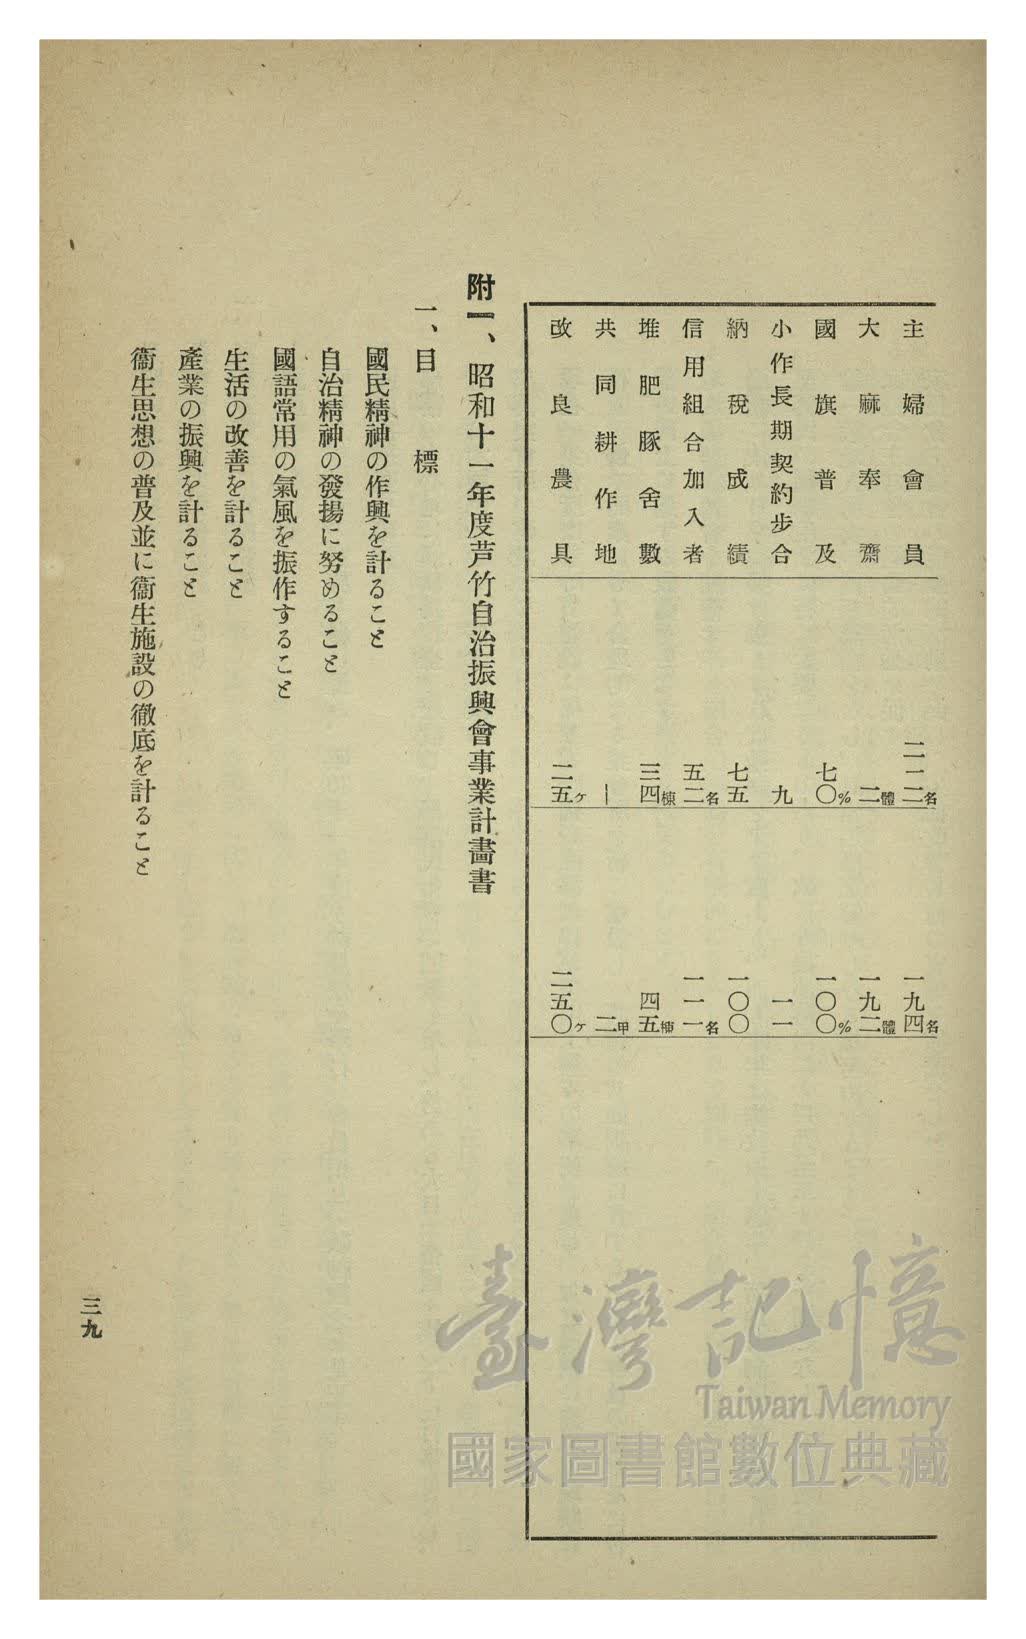 主婦會員 一一二名 一九四名
大麻奉齋 二體 一九二體
國旗普及 七〇% 一〇〇%
小作長期契約步合 九 一一
納稅成績 七五 一〇〇
信用組合加入者 五二名 一一一名
堆肥豚舍數 三四棟 四五棟
共同耕作地 — 二甲
改良農具 二五ヶ 二五〇ヶ
附一、昭和十一年度芦竹自治振興會事業計畫書
一、目標
國民精神の作興を計ること
自治精神の發揚に努めること
國語常用の氣風を振作すること
生活の改善を計ること
產業の振興を計ること
衞生思想の普及並に衞生施設の徹底を計ること
三九
臺灣記憶
Taiwan Memory
國家圖書館數位典藏